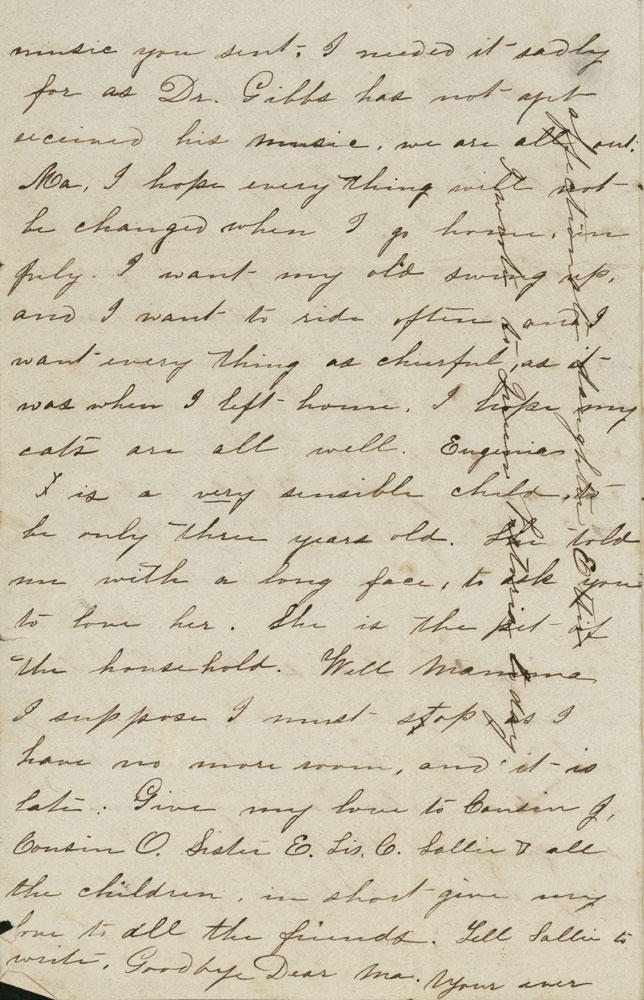 music you sent, I needed it sadly
for as Dr. Gibbs has not apt
received his music, we are all out.
Ma, I hope every thing will not
be changed when I go home, in
July. I want my old swing up,
and I want to ride often and I
want every thing as cheerful, as it
was when I left home. I hope my
cats are all well. Eugenia
is a very sensible child, to
be only three years old. She told
me with a long face, to ask you
to love her. She is the pet of
the household. Well Mamma
I suppose I must stop as I
have no more room, and it is
late. Give my love to Cousin J,
Cousin O. Sister E. Sis. C. Sallie & all
the children, in short give my
love to all the friends. Tell Sallie to
write. Goodbye Dear Ma. Your ever
affectionate daughter Ettie
I wrote to to day